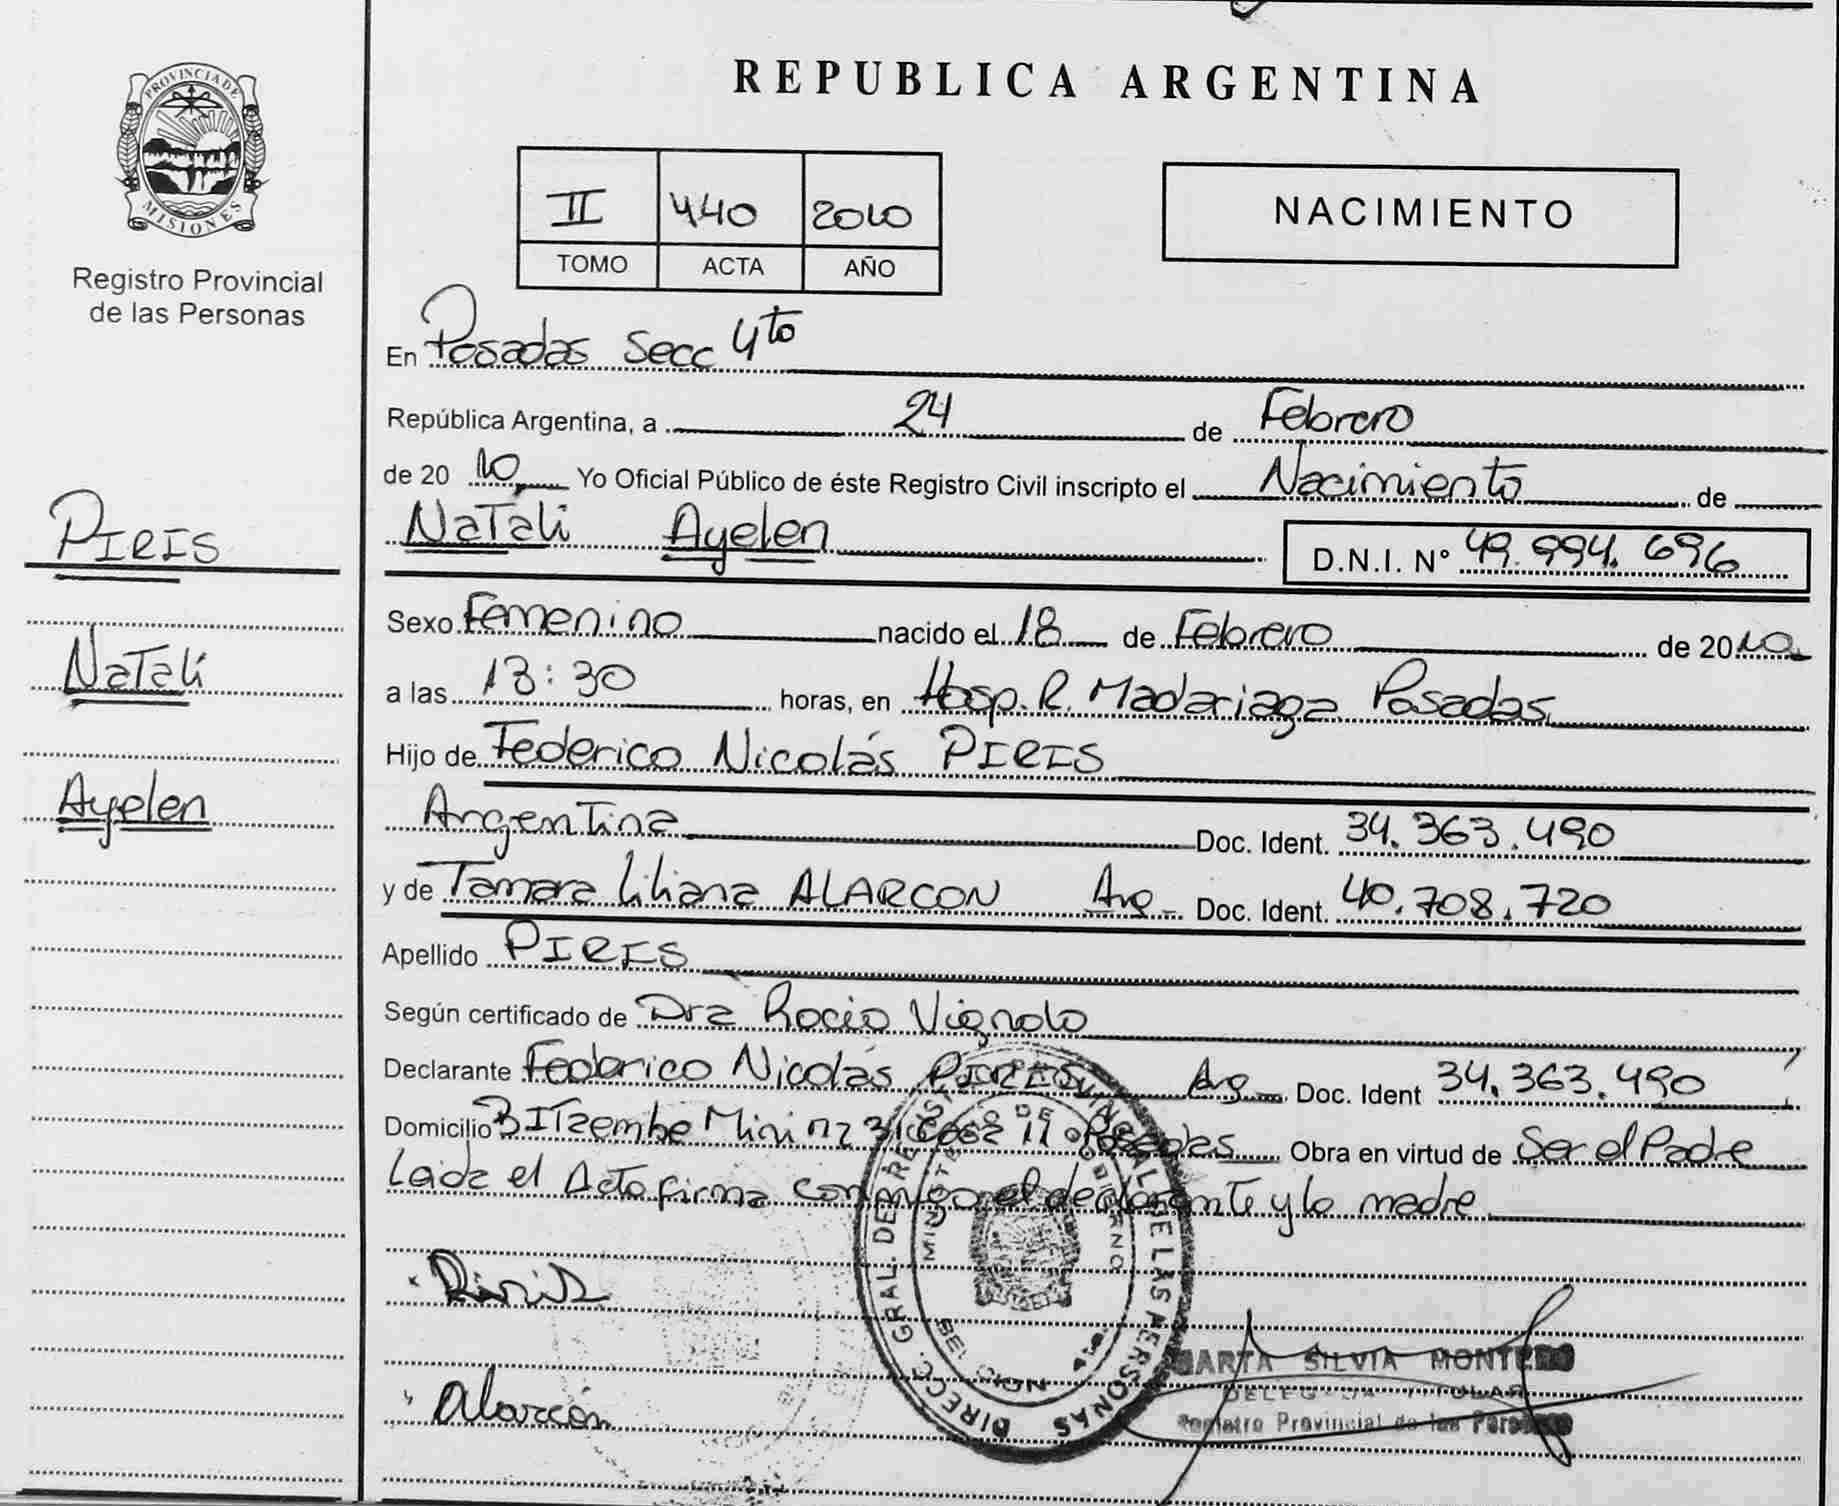 PROVINCIA DE
MISIONES
Registro Provincial
de las Personas
PIRIS
Natali
Ayelen
REPUBLICA ARGENTINA
II 440 2010
TOMO ACTA AÑO
NACIMIENTO
En Posadas Secc 4to
República Argentina, a 24 de Febrero
de 20 10 Yo Oficial Público de éste Registro Civil inscripto el Nacimiento de
Natali Ayelen D.N.I. Nº 49.994.696
Sexo Femenino nacido el 18 de Febrero de 2010
a las 13:30 horas, en Hosp. R. Madariaga Posadas
Hijo de Federico Nicolás PIRIS
Argentina Doc. Ident. 34.363.490
y de Tamara Liliana ALARCON Arg Doc. Ident. 40.708.720
Apellido PIRIS
Según certificado de Dra Rocio Vignolo
Declarante Federico Nicolás PIRIS Arg Doc. Ident 34.363.490
Domicilio Bº Itaembe Mini Posadas Obra en virtud de Ser el Padre
Leida el Acta firma conmigo el declarante y la madre
Piris
Alarcón
DIRECC. GRAL. DE REGISTRO PROVINCIAL DE LAS PERSONAS
MINISTERIO DE GOBIERNO
MARTA SILVIA MONTERO
DELEGADA TITULAR
Registro Provincial de las Personas